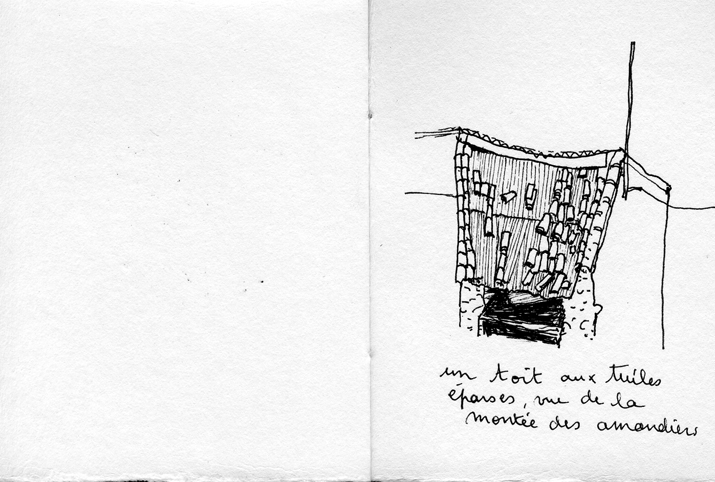 un toit aux tuiles
éparses, vue de la
montée des amandiers